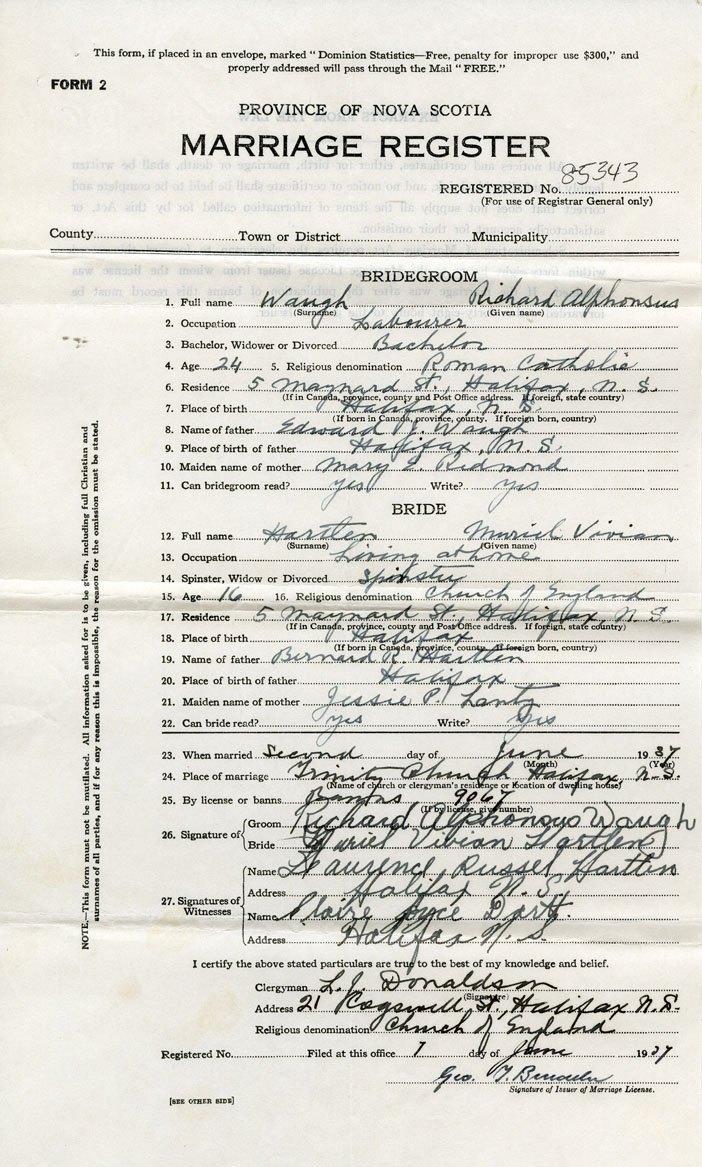 This form, if placed in an envelope, marked "Dominion Statistics—Free, penalty for improper use $300," and
properly addressed will pass through the Mail "FREE."
FORM 2
PROVINCE OF NOVA SCOTIA
MARRIAGE REGISTER
REGISTERED No. 85343
(For use of Registrar General only)
County Town or District Municipality
BRIDEGROOM
1. Full name Waugh Richard Alphonsus
(Surname) (Given name)
2. Occupation Labourer
3. Bachelor, Widower or Divorced Bachelor
4. Age 24 5. Religious denomination Roman Catholic
6. Residence 5 Maynard St., Halifax, N. S.
(If in Canada, province, county and Post Office address. If foreign, state country)
7. Place of birth Halifax, N. S.
(If born in Canada, province, county. If foreign born, country)
8. Name of father Edward J. Waugh
9. Place of birth of father Halifax, N. S.
10. Maiden name of mother Mary E. Redmond
11. Can bridegroom read? yes Write? yes
BRIDE
12. Full name Hartlen Muriel Vivian
(Surname) (Given name)
13. Occupation Living at home
14. Spinster, Widow or Divorced Spinster
15. Age 16 16. Religious denomination Church of England
17. Residence 5 Maynard St. Halifax, N. S.
(If in Canada, province, county and Post Office address. If foreign, state country)
18. Place of birth Halifax
(If born in Canada, province, county. If foreign born, country)
19. Name of father Bernard R. Hartlen
20. Place of birth of father Halifax
21. Maiden name of mother Jessie P. Lantz
22. Can bride read? yes Write? yes
23. When married Second day of June 19 37
(Month) (Year)
24. Place of marriage Trinity Church Halifax, N. S.
(Name of church or clergyman's residence or location of dwelling house)
25. By license or banns Banns 9067
(If by license, give number)
26. Signature of Groom Richard Alphonsus Waugh
Bride Muriel Vivian Hartlen
27. Signatures of Witnesses
Name Laurence Russel Hartlen
Address Halifax N. S.
Name Joyce
Address Halifax N. S.
I certify the above stated particulars are true to the best of my knowledge and belief.
Clergyman L. J. Donaldson
(Signature)
Address 21 Cogswell St., Halifax N. S.
Religious denomination Church of England
Registered No. Filed at this office 7 day of June 19 37
Geo.
Signature of Issuer of Marriage License.
[SEE OTHER SIDE]
NOTE.—This form must not be mutilated. All information asked for is to be given, including full Christian and
surnames of all parties, and if for any reason this is impossible, the reason for the omission must be stated.